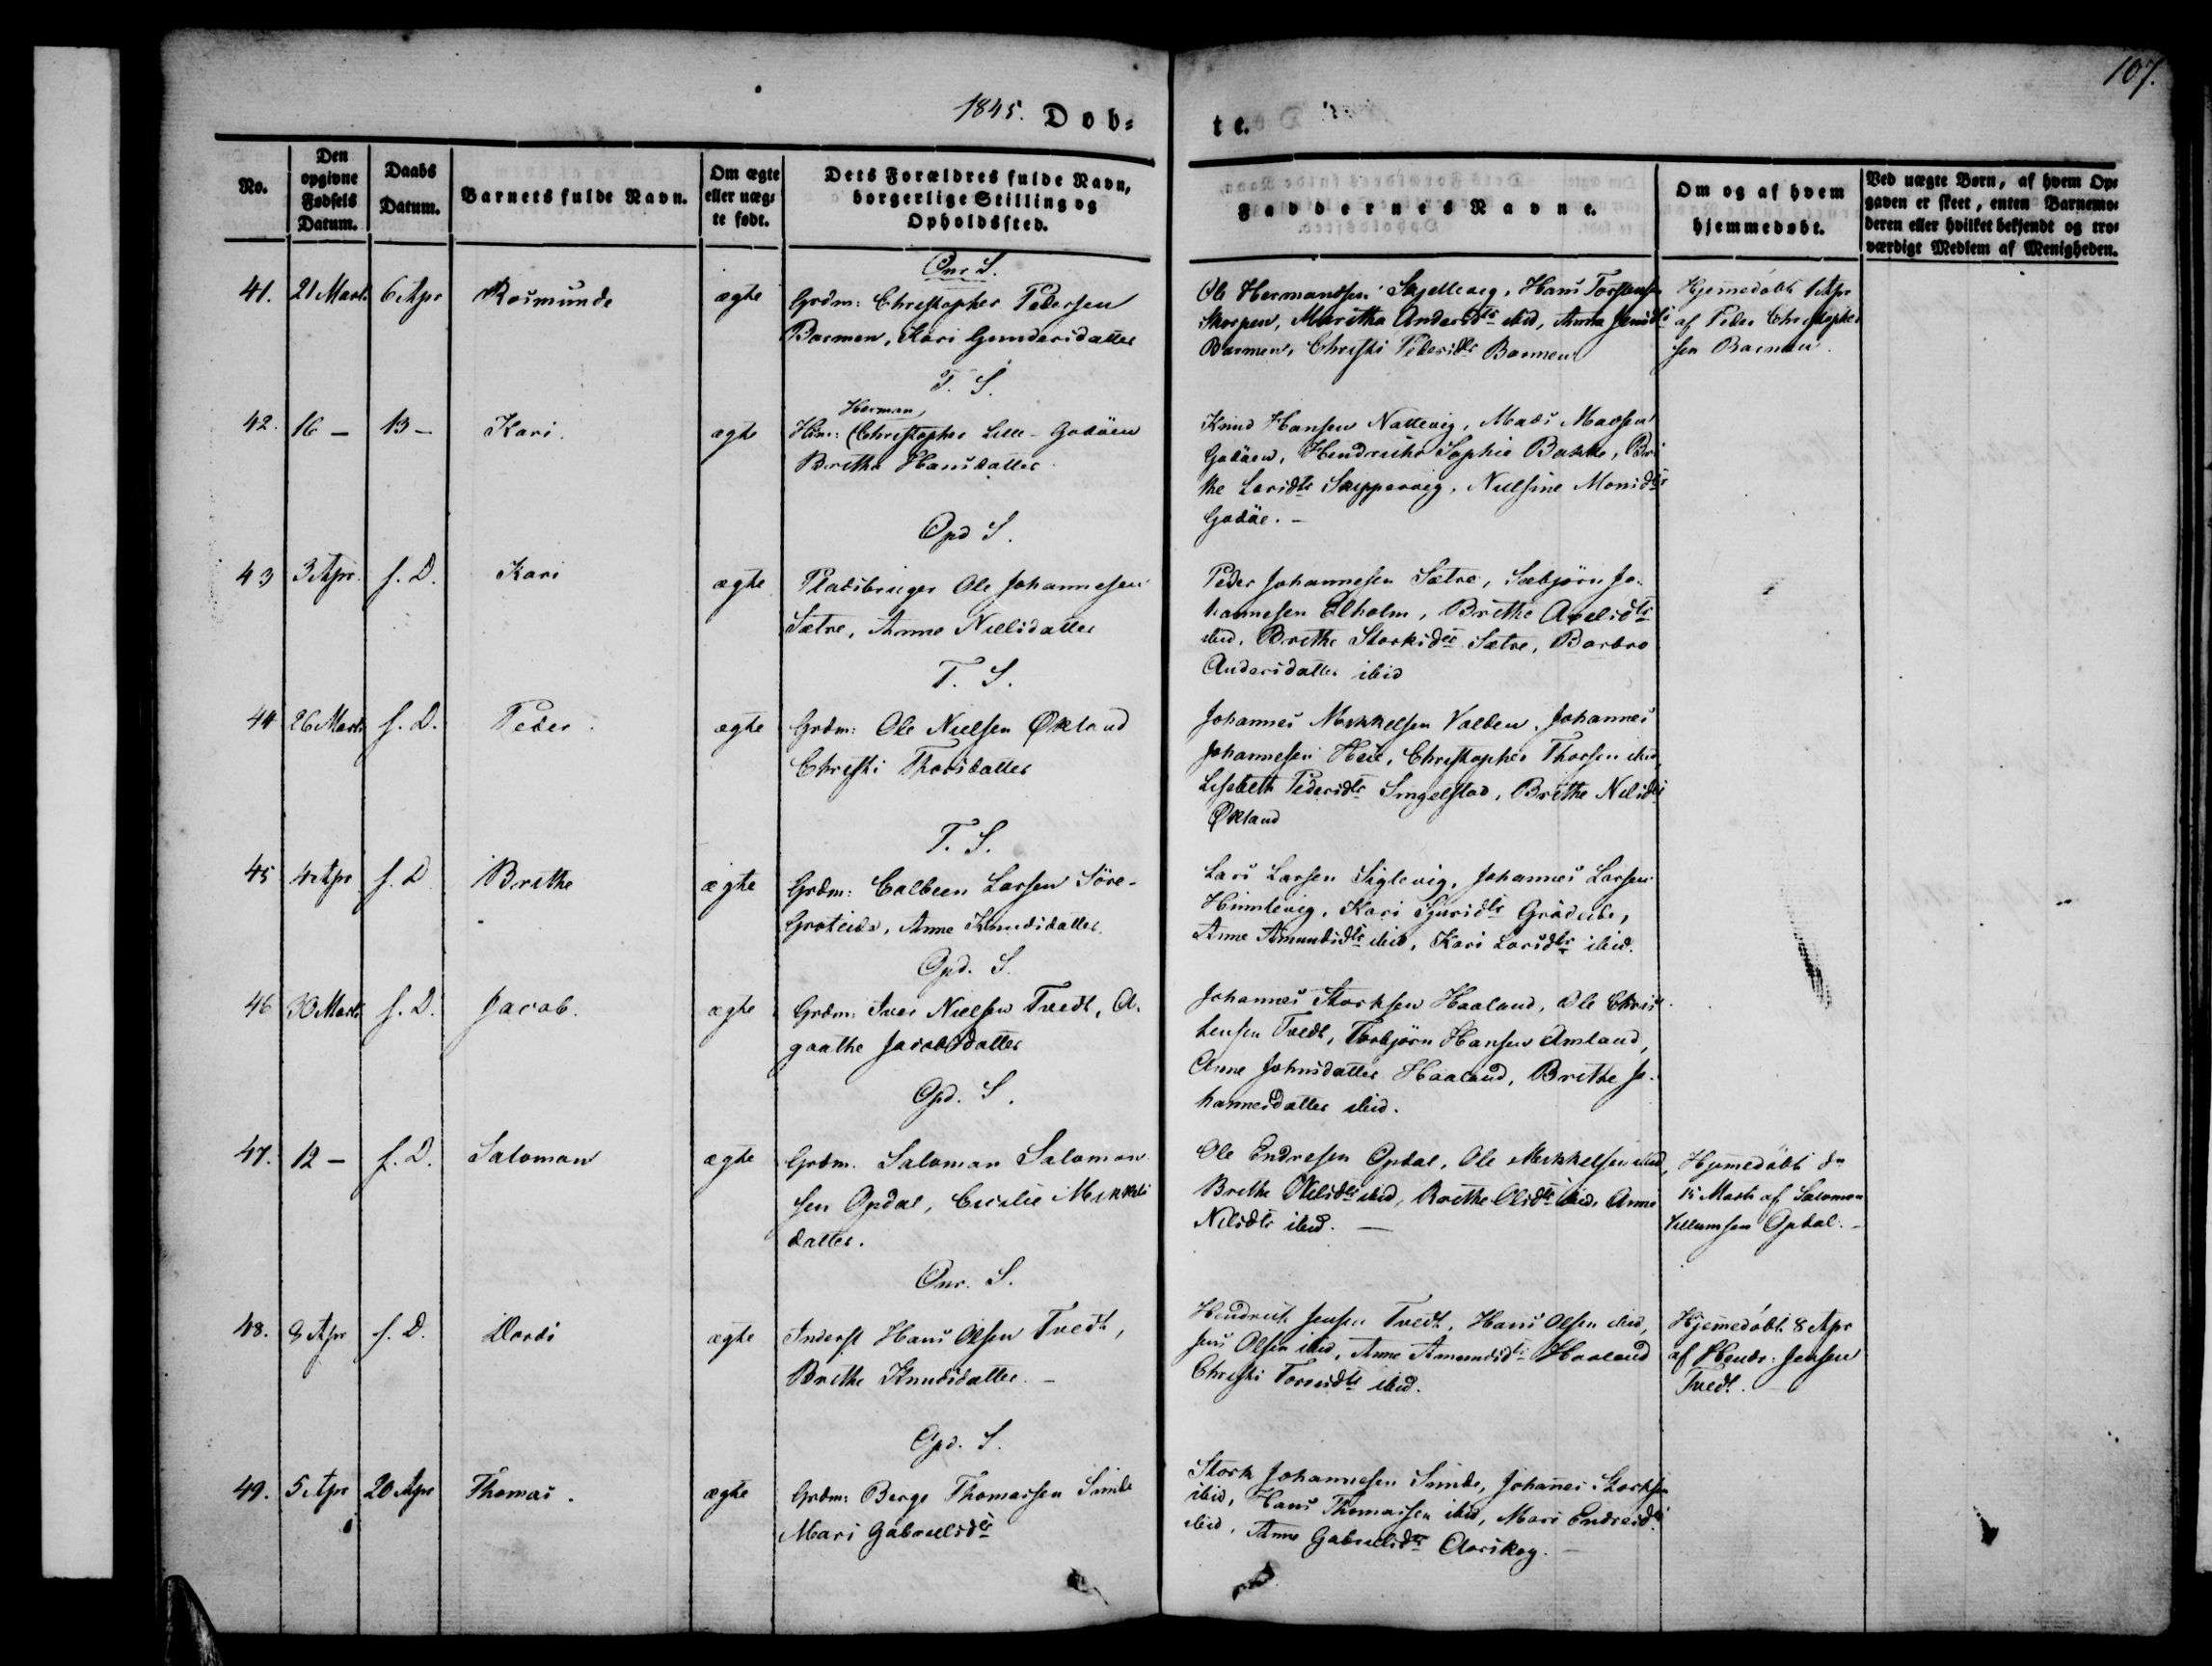 107.
1845. Døb-
te.
No.
Den opgivne Fødsels Datum.
Daabs Datum.
Barnets fulde Navn.
Om ægte eller uægte født.
Dets Forældres fulde Navn, borgerlige Stilling og Opholdssted.
Faddernes Navne.
Om og af hvem hjemmedøbt.
Ved uægte Børn, af hvem Opgaven er skeet, enten Barnemoderen eller hvilket bekjendt og troværdigt Medlem af Menigheden.
Onr S.
41. 21 Marts 6 Apr Rasmunde ægte
Grdm: Christopher Pedersen
Barmen, Kari Gundersdatter
Ole Hermandsen Skjellevig, Hans Torstensen
Skorpen, Maritha Andersdtr ibid, Anna Jensdtr
Barmen, Christi Pedersdtr Barmen
Hjemedøbt 1 Apr
af Peder Christopher
sen Barmen.
T. S.
42. 16 – 13 – Kari. ægte
Herman,
Hm: Christopher Lille-Godøen
Brithe Hansdatter
Knud Hansen Nattevig, Mads Madsen
Godøen, Hendricke Sophie Bakke, Bri
the Larsdtr Skippervig, Nielsine Monsdtr
Godøe. –
Opd S.
43 3 Apr. f. D. Kari ægte
Pladsbruger Ole Johannesen
Sætre, Anne Nielsdatter
Peder Johannesen Sætre, Sæbjørn Jo-
hannesen Elholm, Brithe Axelsdtr
ibid, Brithe Storksdtr Sætre, Barbro
Andersdatter ibid
T. S.
44 26 Marts f. D. Peder. ægte
Grdm: Ole Nielsen Økland
Christi Thorsdatter
Johannes Mikkelsen Valden, Johannes
Johannesen Heie, Christopher Thorsen ibid,
Lisebeth Pedersdtr Singelstad, Brithe Nelsdtr
Økland
T. S.
45 4 Apr f. D Brithe ægte
Grdm: Colbeen Larsen Søre-
Groteide, Anne Knudsdatter
Lars Larsen Siglevig, Johannes Larsen
Himlevig, Kari Sjursdtr Grødeide,
Anne Amundsdtr ibid, Kari Larsdtr ibid.
Opd. S.
46 30 Marts f. D. Jacob. ægte
Grdm: Iver Nielsen Tvedt, A-
gaathe Jacobsdatter
Johannes Storksen Haaland, Ole Chris
tensen Tvedt, Torbjørn Hansen Amland,
Anne Johnsdatter Haaland, Brithe Jo-
hannesdatter ibid.
Opd. S.
47. 12 – f. D. Saloman ægte
Grdm. Saloman Saloman
sen Opdal, Cicilie Mikkels
datter.
Ole Endresen Opdal, Ole Mikkelsen ibid,
Brithe Nilsdtr ibid, Brithe Olsdtr ibid, Anne
Nilsdtr ibid. –
Hjemedøbt dn
15 Marts af Saloman
Villumsen Opdal. –
Onr. S.
48. 8 Apr f. D. Dordi ægte
Inderst Hans Olsen Tvedt,
Brithe Knudsdatter. –
Hendrick Jensen Tvedt, Hans Olsen ibid,
Jens Olsen ibid, Anne Amundsdtr Haaland
Christi Torresdtr ibid.
Hjemedøbt 8 Apr
af Hendr: Jensen
Tvedt.
Opd. S.
49. 5 Apr 20 Apr Thomas. ægte
Grdm: Berge Thomassen Sunde
Mari Gabrielsdtr
Stork Johannesen Sunde, Johanes Storksen
ibid, Hans Thomassen ibid, Mari Endresdtr
ibid, Anne Gabrielsdtr Aarskog. –